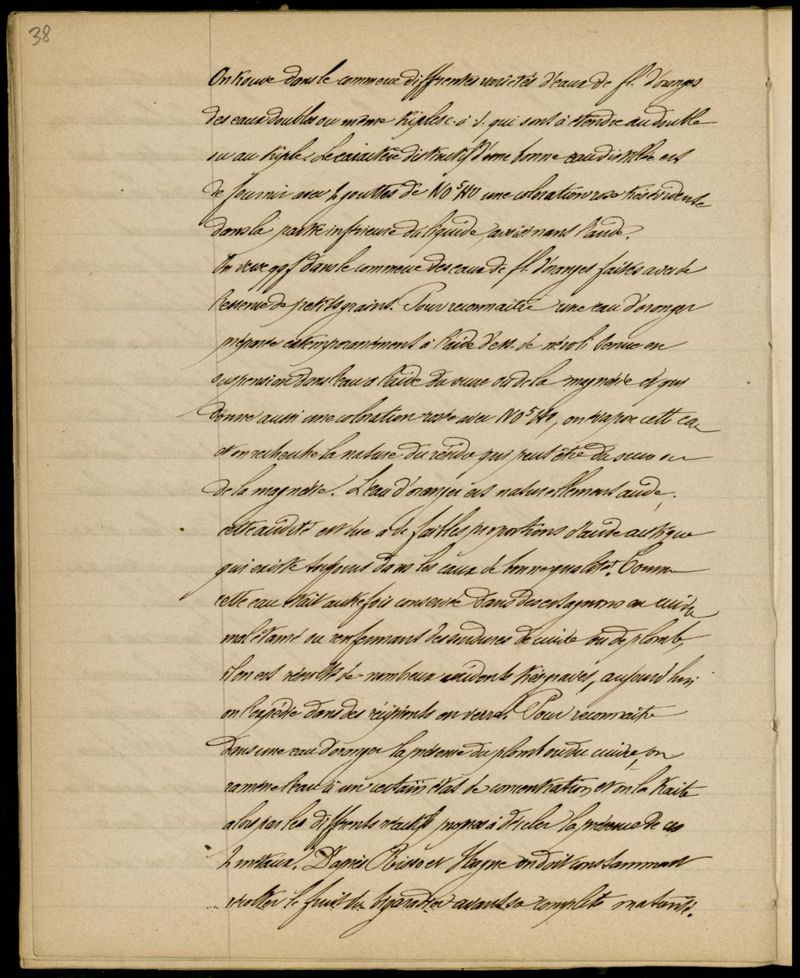 38
On trouve dans le commerce differentes variétés d'eaux de fl. d'oranger
des eaux doubles ou même triples c. à d. qui sont à etendre au double
ou au triple. Le caractère distinctif d'une bonne eau distillée est
de fournir avec 2 gouttes de NO⁵HO une coloration rose très évidente
dans la partie inférieure du liquide avoisinant l'acide.
On trouve qqf dans le commerce des eaux de fl. d'oranger faites avec de
l'essence de petits grains. Pour reconnaitre une eau d'oranger
préparée extemporanément à l'aide d'ess. de néroli tenue en
suspension dans l'eau à l'aide du sucre ou de la magnésie et qui
donne aussi une coloration rose avec NO⁵HO, on évapore cette eau
et on recherche la nature du résidu qui peut être du sucre ou
de la magnésie. L'eau d'oranger est naturellement acide,
cette acidité est due à de faibles proportions d'acide acétique
qui existe toujours dans les eaux de bonne qualité. Comme
cette eau était autrefois conservée dans des estagnons en cuivre
mal étamé ou renfermant des soudures de cuivre ou de plomb,
il en est résulté de nombreux accidents très graves, aujourd'hui
on l'expédie dans des récipients en verre. Pour reconnaitre
dans une eau d'oranger la présence du plomb ou du cuivre, on
ramène l'eau à un certain état de concentration et on la traite
alors par les différents réactifs propres à déceler la présence de ces
2 métaux. D'après Risso et Hogne on doit constamment
récolter le fruit du bigaradier avant sa complète maturité.